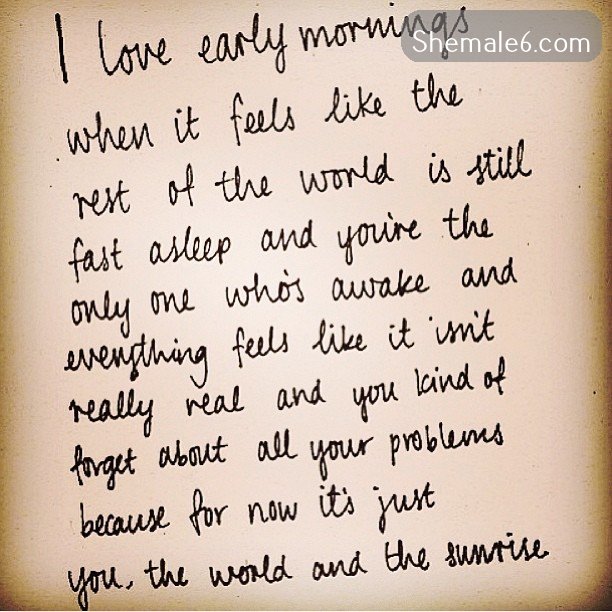 I love early mornings
Shemale6.com
when it feels like the
rest of the world is still
fast asleep and you're the
only one who's awake and
everything feels like it isn't
really real and you kind of
forget about all your problems
because for now it's just
you, the world and the sunrise